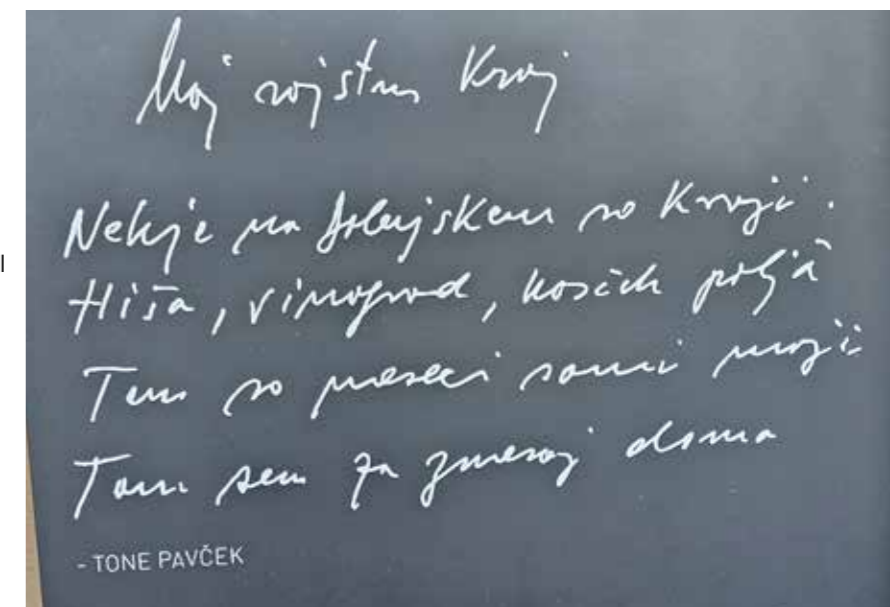 Moj rojstni kraj
Nekje na Dolenjskem so kraji.
Hiša, vinograd, košček poljâ
Tam so meseci sami maji
Tam sem za zmeraj doma
- TONE PAVČEK